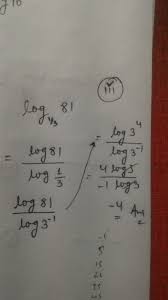 iii
log_{1/3} 81
= log81 / log 1/3
log81 / log3^{-1}
= log3^4 / log3^{-1}
= 4 log3 / -1 log3
= -4 Ans